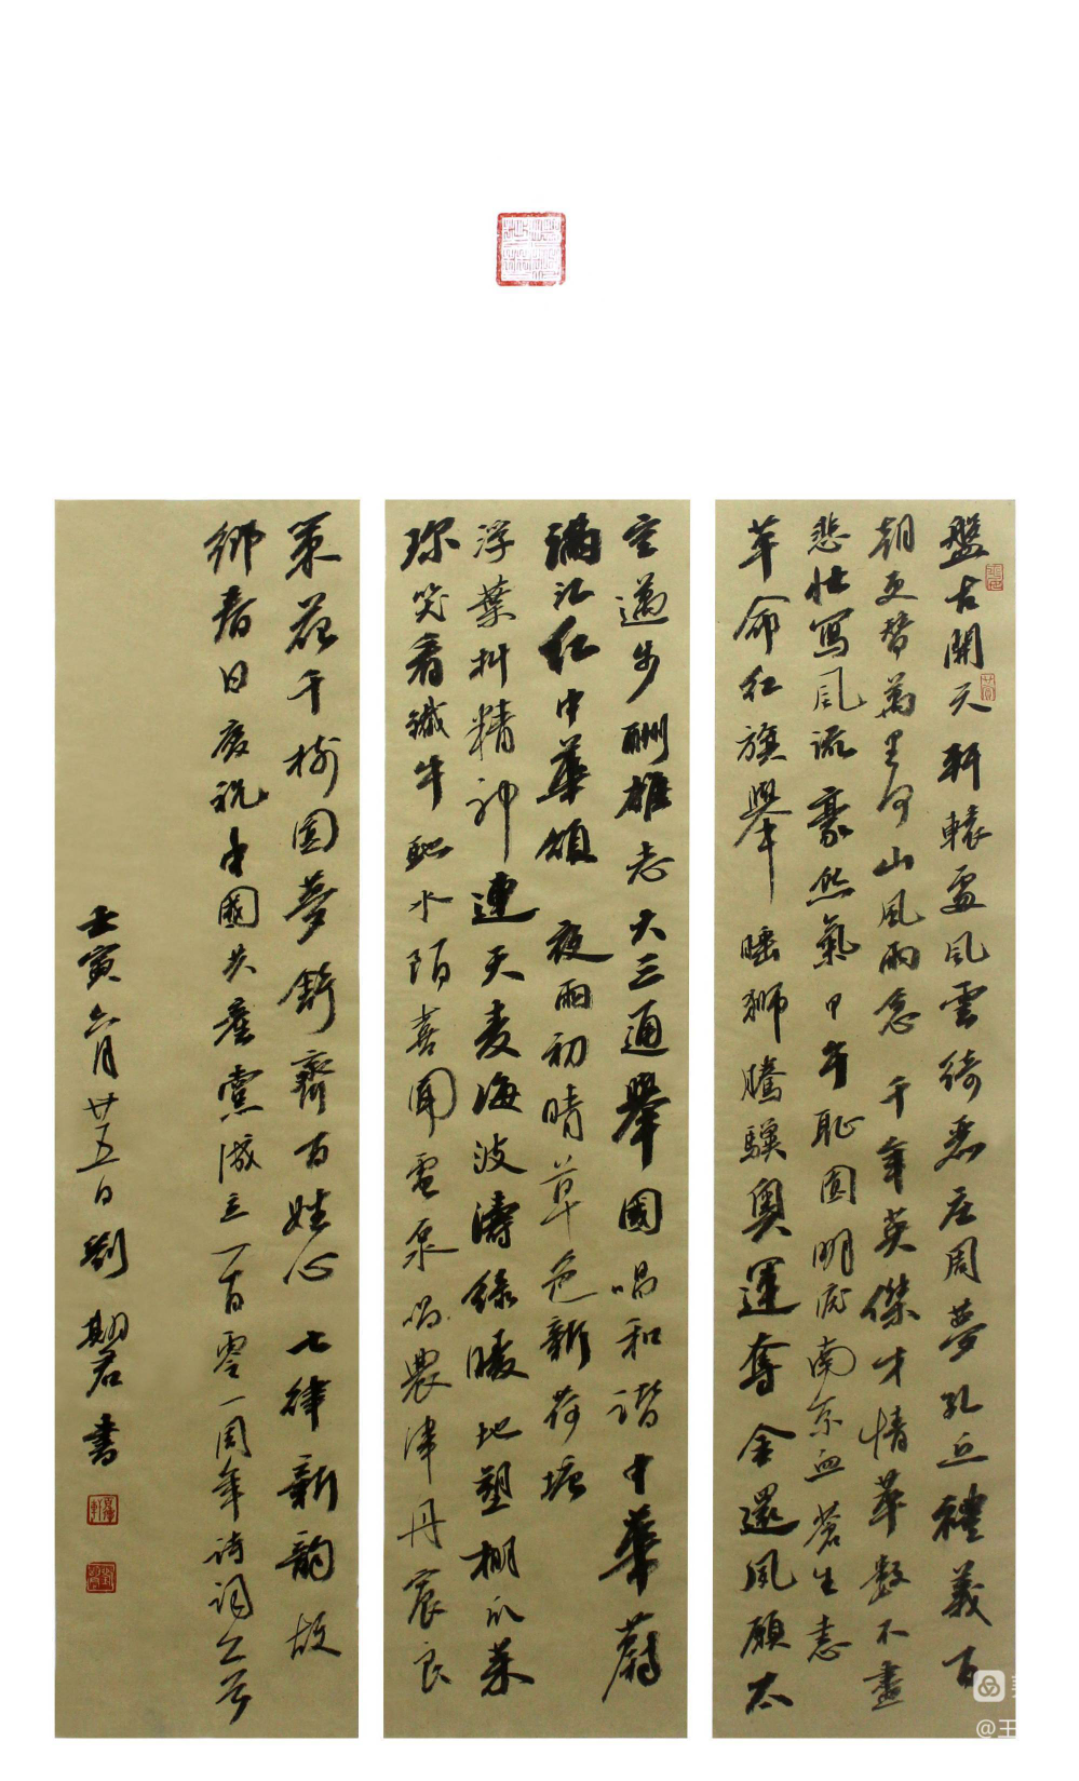 盤古開天軒轅處風雲綺莊周夢孔丘禮義百
朝更替萬里河山風雨急千年英傑才情華數不盡
悲壯寫風流豪然氣甲午恥圓明疵南京血蒼生恚
革命紅旗舉睡獅騰驥奧運奪金還夙願太
空邁步酬雄志大三通舉國唱和諧中華蔚
滿江紅中華頌 夜雨初晴草色新荷塘
浮葉抖精神連天麥海波濤綠暖地塑棚瓜菜
珎笑看鐵牛馳水陌喜聞電泵唱農津丹宸良
策花千樹圓夢齊百姓心七律新韵故
鄉春日慶祝中國共產黨成立一百零一周年詩詞二首
壬寅六月廿五日劉期君書
@王